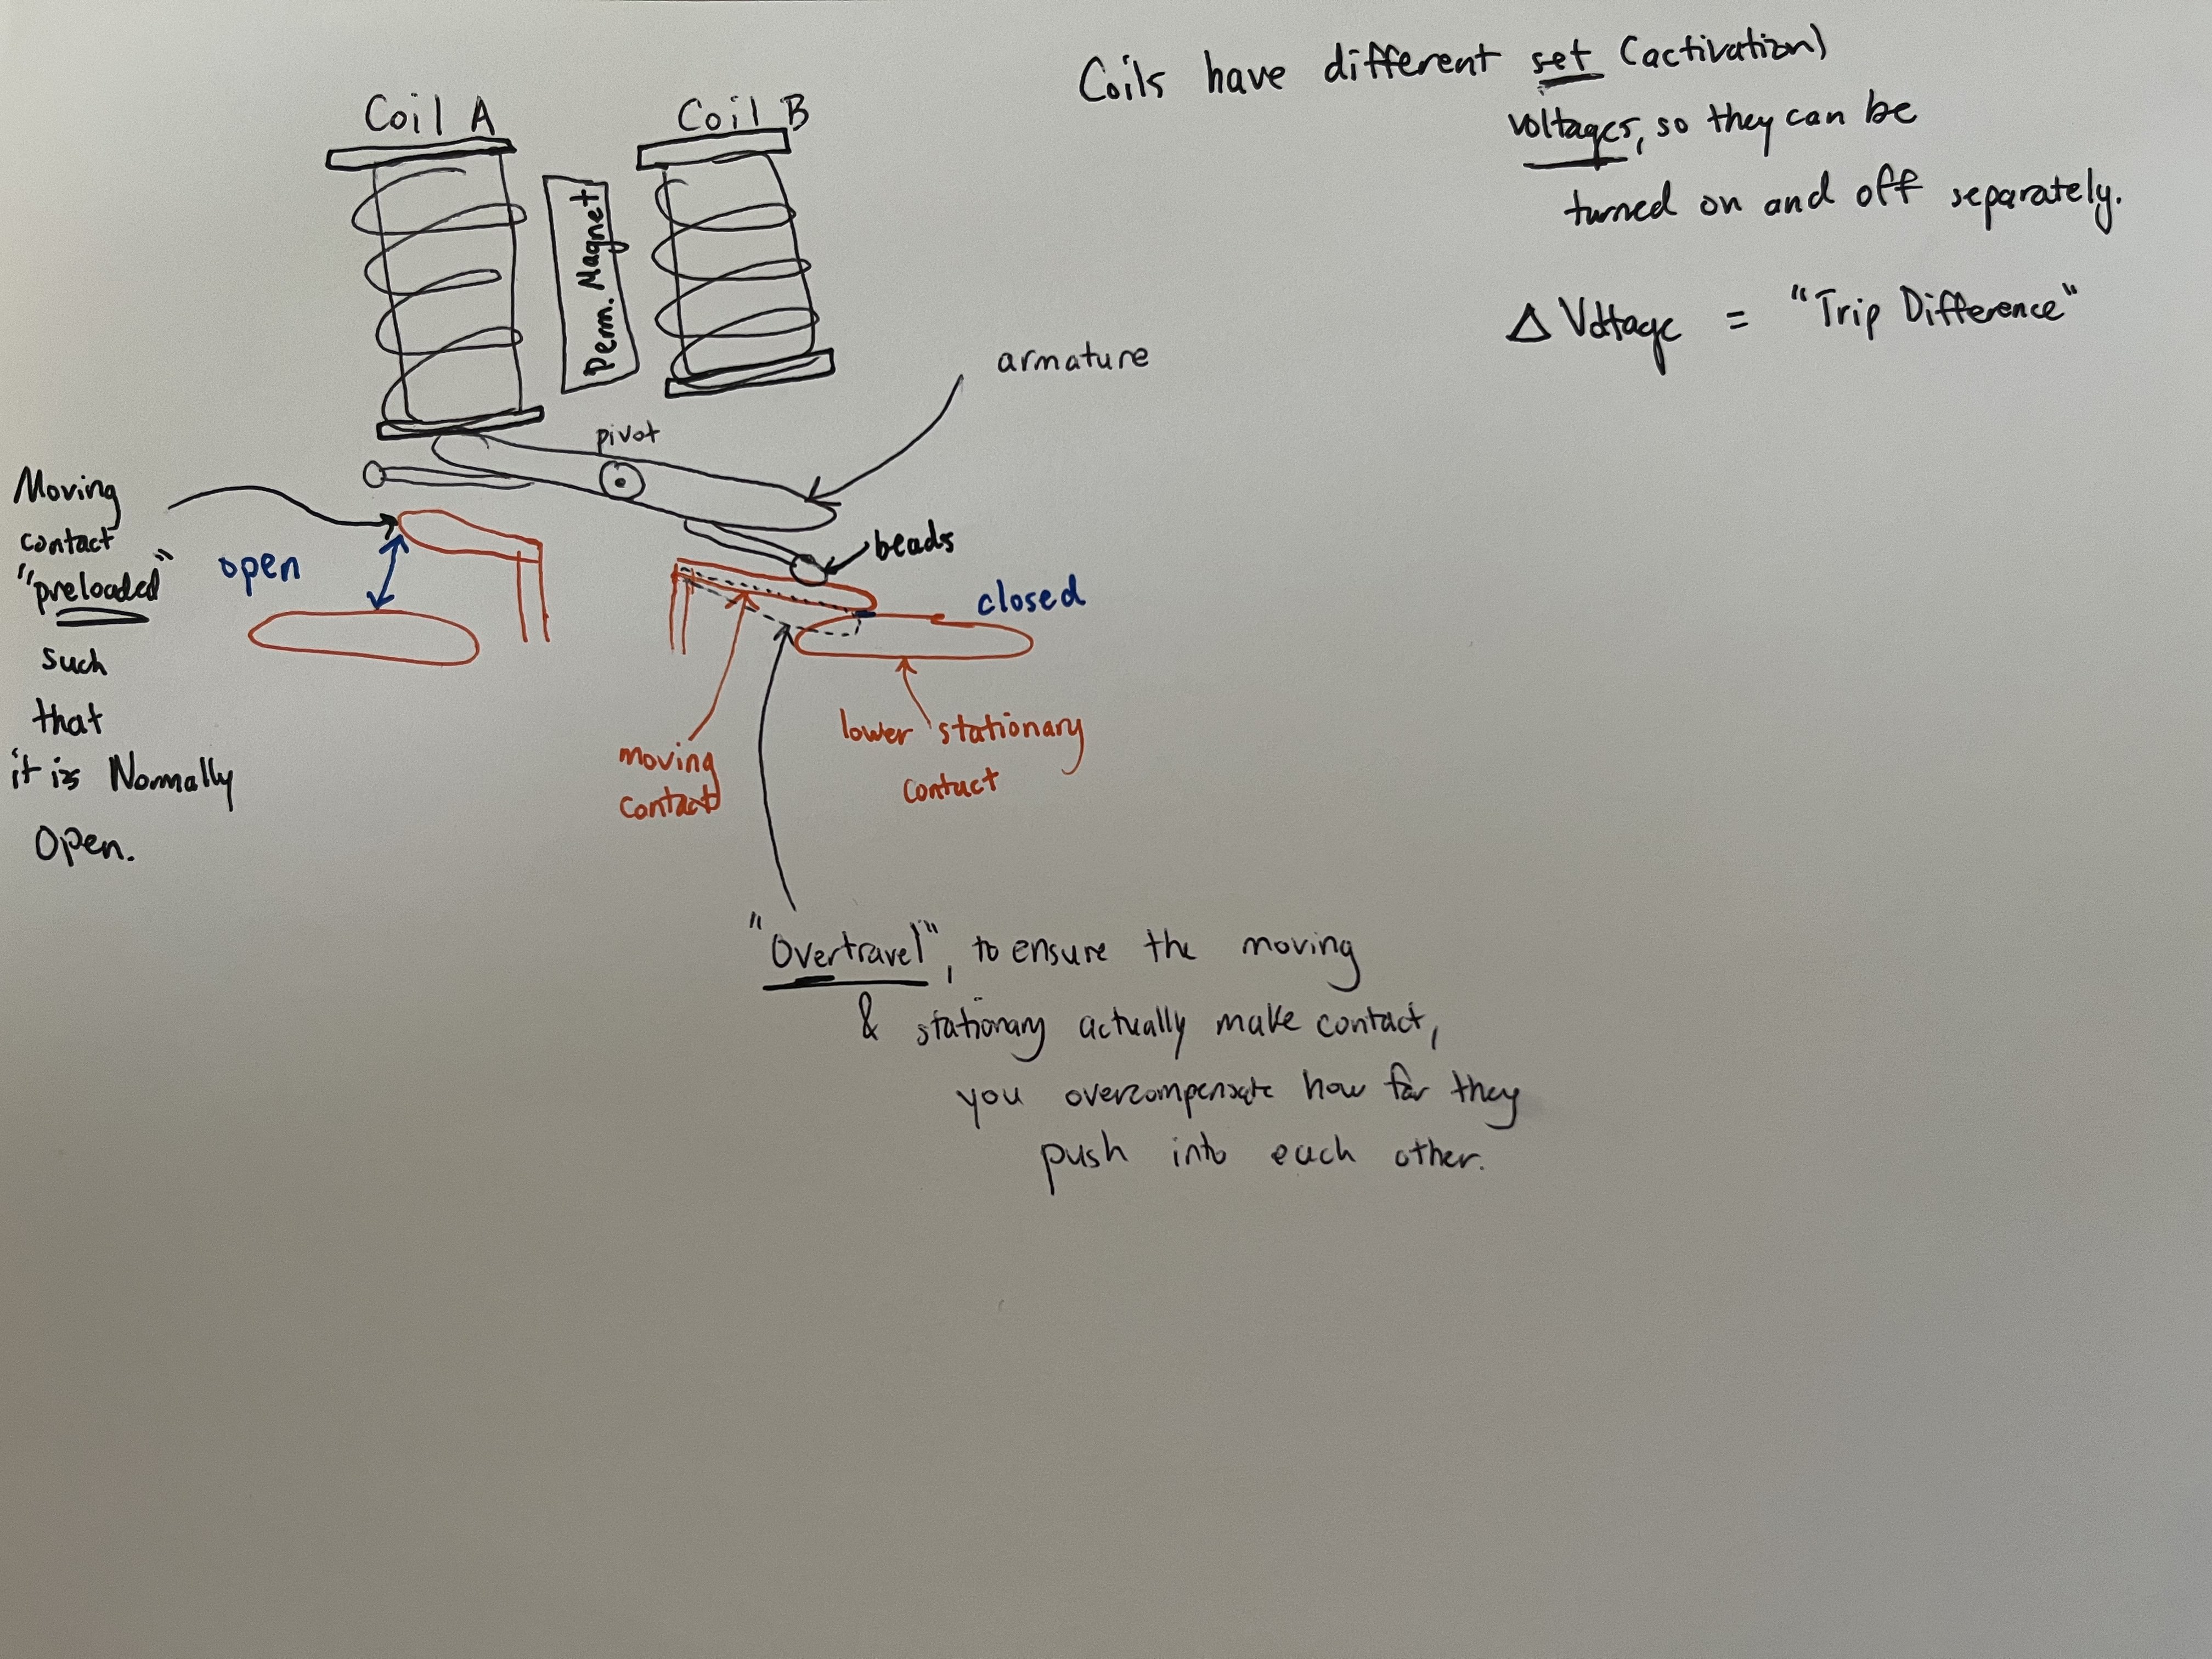 Coils have different set (activation)
voltages, so they can be
turned on and off separately.
Δ Voltage = "Trip Difference"
Coil A
Coil B
Perm. Magnet
armature
pivot
Moving
contact
"preloaded"
such
that
it is Normally
Open.
open
beads
closed
moving
contact
lower stationary
contact
"Overtravel", to ensure the moving
& stationary actually make contact,
you overcompensate how far they
push into each other.